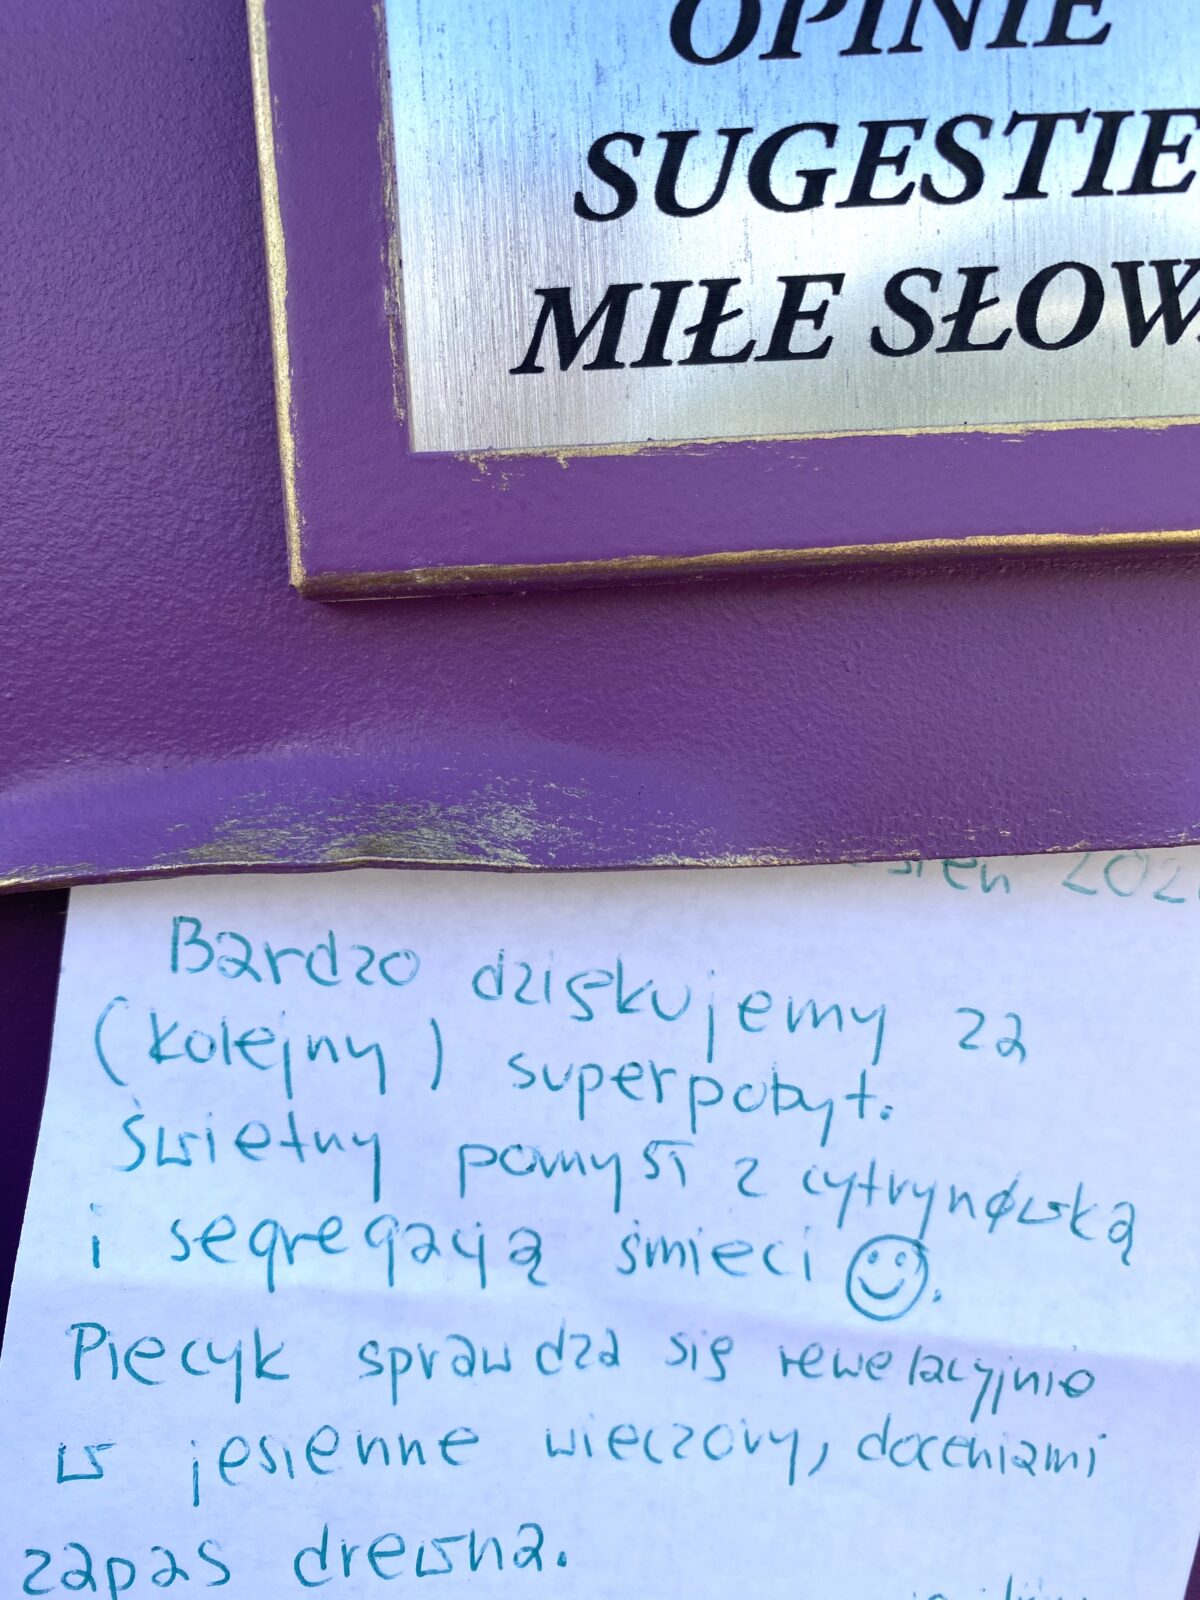 OPINIE
SUGESTIE
MIŁE SŁOW
Bardzo dziękujemy za
(kolejny) superpobyt.
Świetny pomysł z cytrynówką
i segregacją śmieci ☺.
Piecyk sprawdza się rewelacyjnie
w jesienne wieczory, doceniami
zapas drewna.